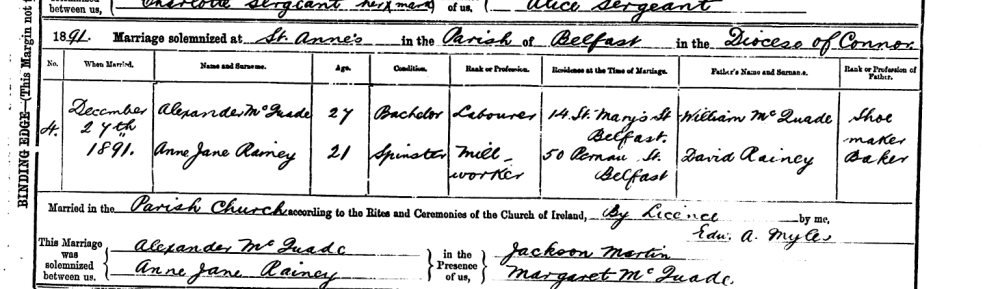 between us, Charlotte Sergeant her x mark of us, Alice Sergeant
1891. Marriage solemnized at St. Anne's in the Parish of Belfast in the Diocese of Connor
No. When Married. Name and Surname. Age. Condition. Rank or Profession. Residence at the Time of Marriage. Father's Name and Surname. Rank or Profession of Father.
4. December 27th 1891.
Alexander McQuade 27 Bachelor Labourer 14 St. Mary's St Belfast. William McQuade Shoe maker
Anne Jane Rainey 21 Spinster Mill-worker 50 St. Belfast David Rainey Baker
Married in the Parish Church according to the Rites and Ceremonies of the Church of Ireland, By Licence by me,
Edw. A. Myles
This Marriage was solemnized between us. Alexander McQuade
Anne Jane Rainey
in the Presence of us, Jackson Martin
Margaret McQuade.
BINDING EDGE—(This Margin not t